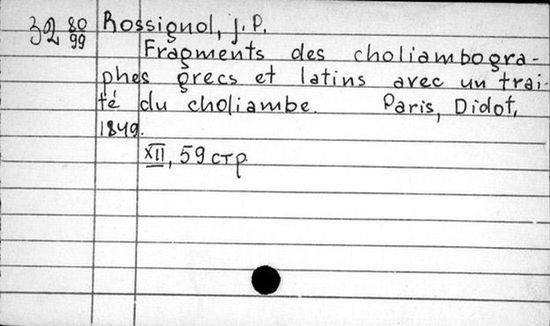 32 80/99 Rossignol, J. P.
Fragments des choliambogra-
phes grecs et latins avec un trai-
té du choliambe. Paris, Didot,
1849.
XII, 59 стр